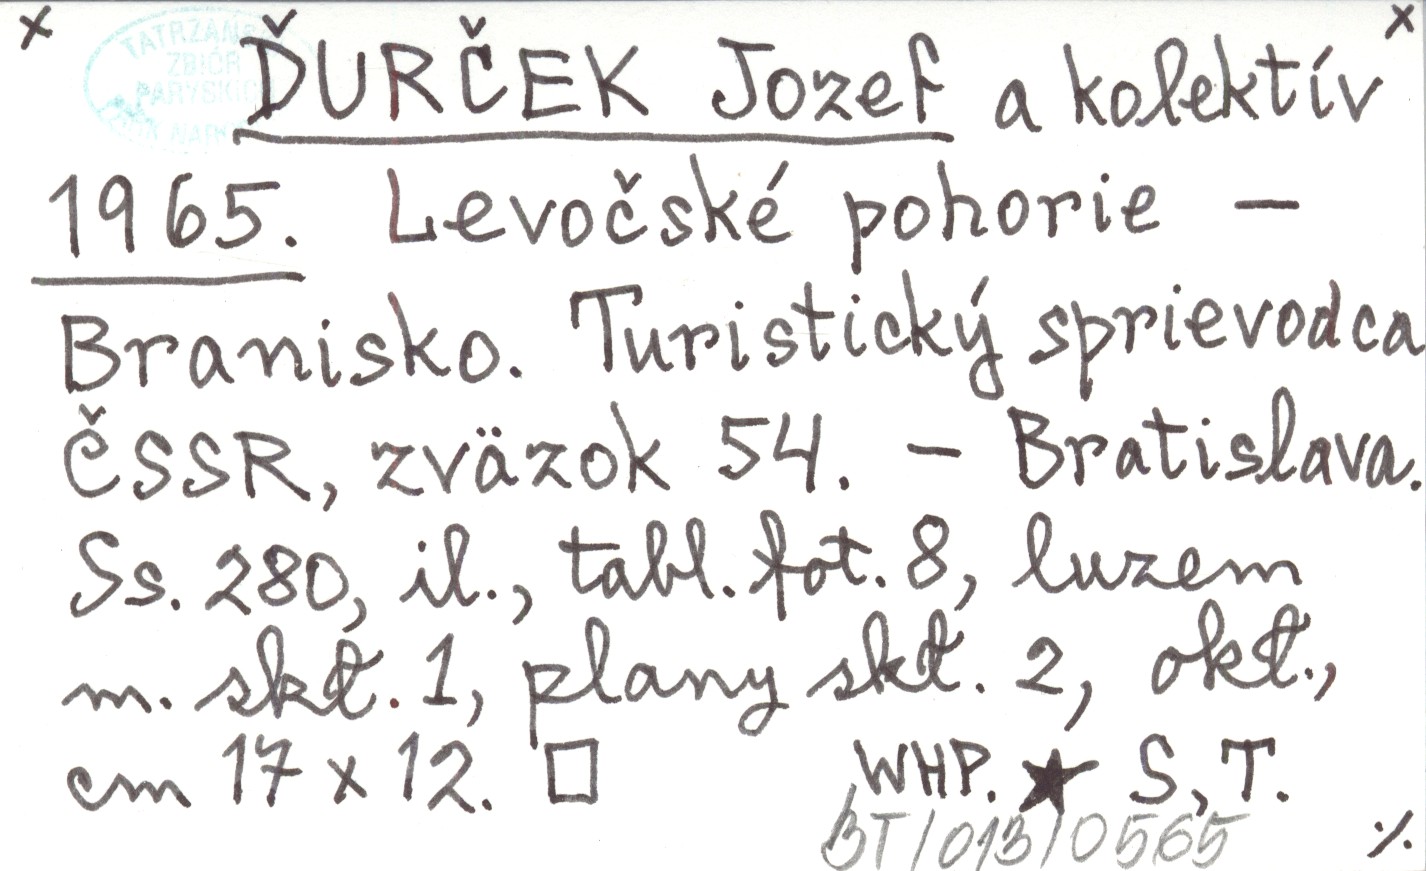 x x
TATRZAŃSKI
ZBIÓR
PARYSKICH
ĎURČEK Jozef a kolektív
1965. Levočské pohorie –
Branisko. Turistický sprievodca
ČSSR, zväzok 54. – Bratislava.
Ss. 280, il., tabl. fot. 8, luzem
m. skł. 1, plany skł. 2, okł.,
cm 17 x 12. □ WHP. ★ S, T.
BT/013/0565 ·/.